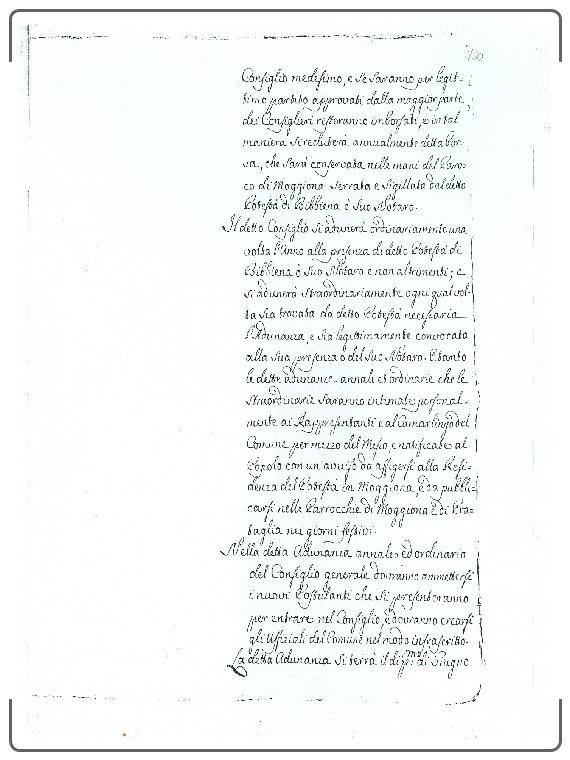 Consiglio medesimo, e se saranno per legit-
timo partito approvati dalla maggior parte
dei Consiglieri resteranno imborsati, e in tal
maniera si rieduterà annualmente detta Bor-
sa, che sarà conservata nelle mani del Paro-
co di Moggiona Serrata e Sigillata dal detto
Potestà di Bibbiena o suo Notaro.
Il detto Consiglio si adunerà ordinariamente una
volta l'Anno alla presenza di detto Potestà di
Bibbiena o suo Notaro e non altrimenti; e
si adunerà straordinariamente ogni qual vol-
ta sia trovata da detto Potestà necessaria
l'Adunanza, e sia legittimamente convocata
alla sua presenza o del suo Notaro. E tanto
le dette adunanze annali et ordinarie che le
straordinarie saranno intimate personal-
mente ai Rappresentanti e al Camarlingo del
Comune per mezzo del Messo, e notificate al
Popolo con un avviso da affigersi alla Resi-
denza del Potestà in Moggiona, e da pubbli-
carsi nelle Parrocchie di Moggiona e di Pra-
taglia nei giorni festivi.
Nella detta Adunanza annale, ed ordinaria
del Consiglio generale dovranno ammettersi
i nuovi Postulanti che si presenteranno
per entrare nel Consiglio, e dovranno crearsi
gli Uffiziali del Comune nel modo infrascritto.
La detta Adunanza si terrà il dì p.mo di Giugno